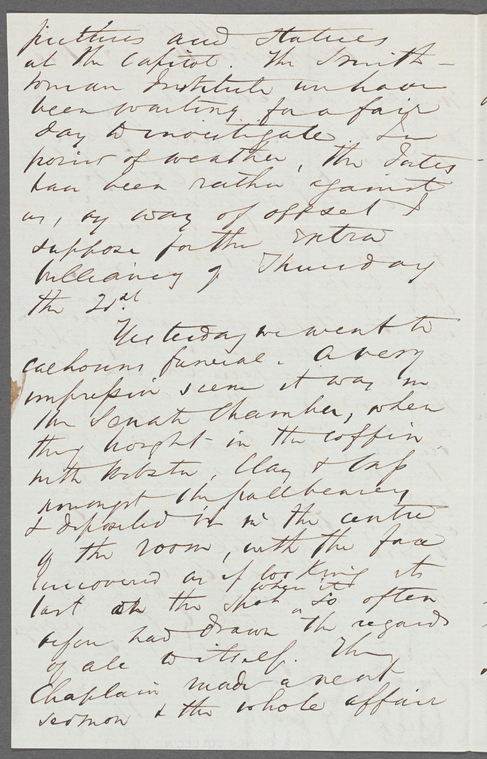 pictures and statues
at the Capitol. The Smith-
sonian Institute we have
been waiting for a fair
day to investigate. In
point of weather, the Fates
have been rather against
us, by way of offset I
suppose for the extra
brilliancy of Thursday
the 21st.
Yesterday we went to
Calhouns funeral. A very
impressive scene it was in
the Senate Chamber, when
they brought in the coffin
with Webster, Clay & Cass
amongst the pallbearers
& deposited it in the centre
of the room, with the face
uncovered as if looking its
last on the spot when it so often
before had drawn the regards
of all to itself. The
Chaplain made a neat
sermon & the whole affair